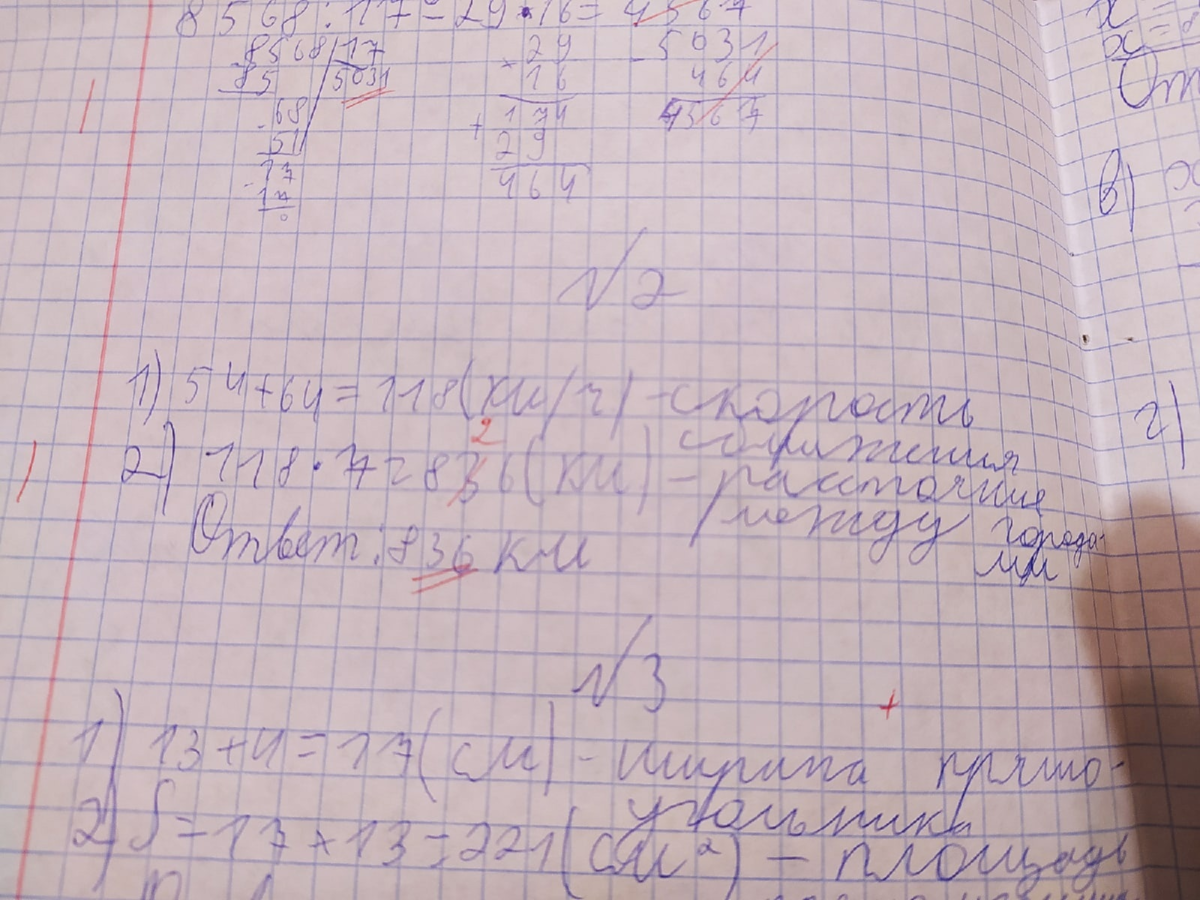 8568:17-29·16=4567
8568|17
85 5031
68
51
17
17
0
29
16
174
+ 29
464
5031
464
4567
№2
1) 54+64=118(км/ч) - скорость
сближения
2) 118·7=836(км) - расстояние
2
между города-
ми
Ответ: 836 км
№3
+
1) 13+4=17(см) - ширина прямо-
угольника
2) S=17×13=221(см²) - площадь
x=
x=
От
в)
г)